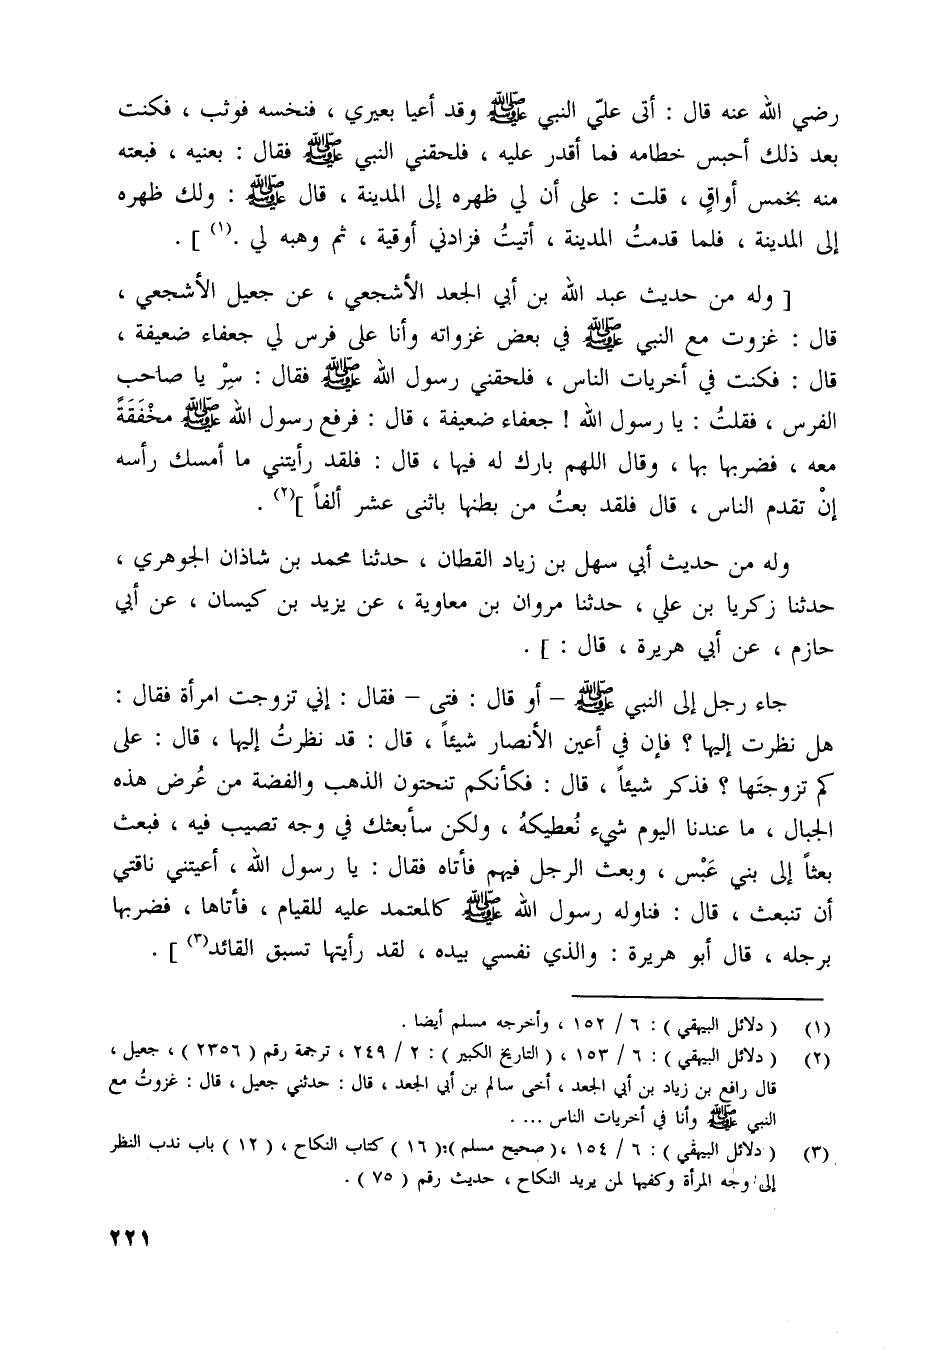 رضي الله عنه قال : أتى عليّ النبي ﷺ وقد أعيا بعيري ، فنخسه فوثب ، فكنت
بعد ذلك أحبس خطامه فما أقدر عليه ، فلحقني النبي ﷺ فقال : بعنيه ، فبعته
منه بخمس أواقٍ ، قلت : على أن لي ظهره إلى المدينة ، قال ﷺ : ولك ظهره
إلى المدينة ، فلما قدمتُ المدينة ، أتيتُ فزادني أوقية ، ثم وهبه لي .(١) ] .
[ وله من حديث عبد الله بن أبي الجعد الأشجعي ، عن جعيل الأشجعي ،
قال : غزوت مع النبي ﷺ في بعض غزواته وأنا على فرس لي جعفاء ضعيفة ،
قال : فكنت في أخريات الناس ، فلحقني رسول الله ﷺ فقال : سِرْ يا صاحب
الفرس ، فقلتُ : يا رسول الله ! جعفاء ضعيفة ، قال : فرفع رسول الله ﷺ مخْفَقَةً
معه ، فضربها بها ، وقال اللهم بارك له فيها ، قال : فلقد رأيتني ما أمسك رأسه
إنْ تقدم الناس ، قال فلقد بعتُ من بطنها باثنى عشر ألفاً ](٢) .
وله من حديث أبي سهل بن زياد القطان ، حدثنا محمد بن شاذان الجوهري ،
حدثنا زكريا بن علي ، حدثنا مروان بن معاوية ، عن يزيد بن كيسان ، عن أبي
حازم ، عن أبي هريرة ، قال : ] .
جاء رجل إلى النبي ﷺ – أو قال : فتى – فقال : إني تزوجت امرأة فقال :
هل نظرت إليها ؟ فإن في أعين الأنصار شيئاً ، قال : قد نظرتُ إليها ، قال : على
كم تزوجتَها ؟ فذكر شيئاً ، قال : فكأنكم تنحتون الذهب والفضة من عُرض هذه
الجبال ، ما عندنا اليوم شيء نُعطيكهُ ، ولكن سأبعثك في وجه تصيب فيه ، فبعث
بعثاً إلى بني عَبْس ، وبعث الرجل فيهم فأتاه فقال : يا رسول الله ، أعيتني ناقتي
أن تنبعث ، قال : فناوله رسول الله ﷺ كالمعتمد عليه للقيام ، فأتاها ، فضربها
برجله ، قال أبو هريرة : والذي نفسي بيده ، لقد رأيتها تسبق القائد(٣) ] .
(١) ( دلائل البيهقي ) : ٦ / ١٥٢ ، وأخرجه مسلم أيضا .
(٢) ( دلائل البيهقي ) : ٦ / ١٥٣ ، ( التاريخ الكبير ) : ٢ / ٢٤٩ ، ترجمة رقم ( ٢٣٥٦ ) ، جعيل ،
قال رافع بن زياد بن أبي الجعد ، أخى سالم بن أبي الجعد ، قال : حدثني جعيل ، قال : غزوتُ مع
النبي ﷺ وأنا في أخريات الناس ... .
(٣) ( دلائل البيهقي ) : ٦ / ١٥٤ ،( صحيح مسلم ):( ١٦ ) كتاب النكاح ، ( ١٢ ) باب ندب النظر
إلى وجه المرأة وكفيها لمن يريد النكاح ، حديث رقم ( ٧٥ ) .
٢٢١